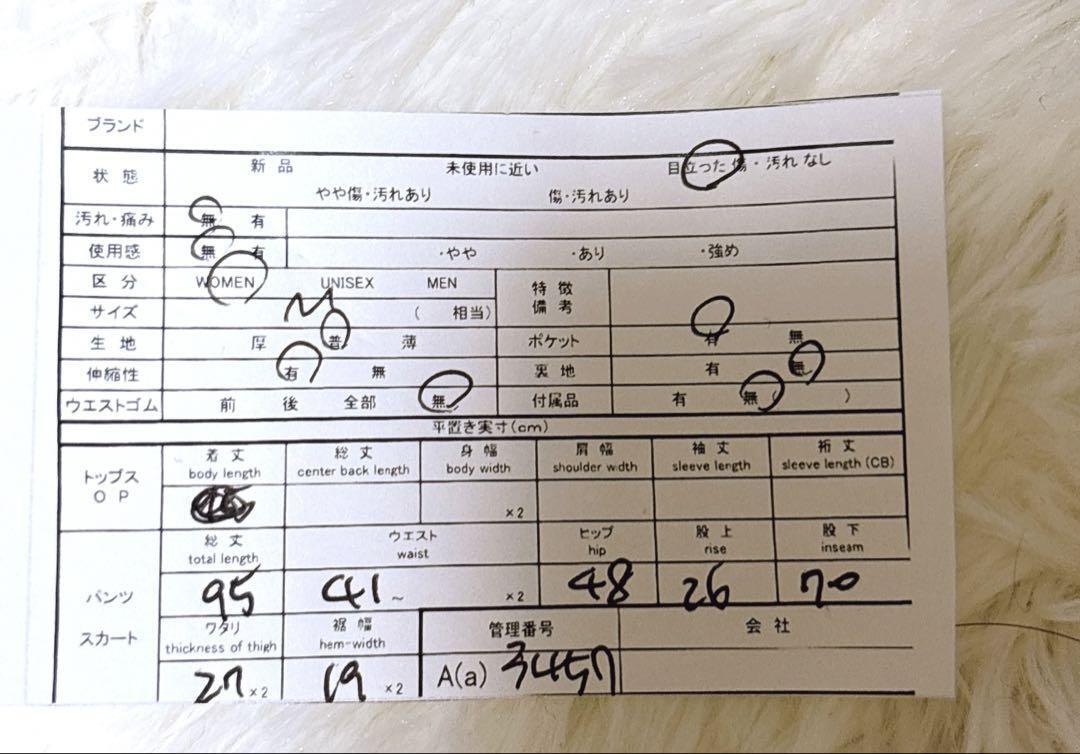 ブランド
状態 新品 未使用に近い 目立った傷・汚れなし
やや傷・汚れあり 傷・汚れあり
汚れ・痛み 無 有
使用感 無 有 ・やや ・あり ・強め
区分 WOMEN UNISEX MEN 特徴
備考
サイズ M ( 相当)
生地 厚 普 薄 ポケット 有 無
伸縮性 有 無 裏地 有 無
ウエストゴム 前 後 全部 無 付属品 有 無 ( )
平置き実寸(cm)
トップス
OP
着丈 総丈 身幅 肩幅 袖丈 裄丈
body length center back length body width shoulder width sleeve length sleeve length (CB)
×2
総丈 ウエスト ヒップ 股上 股下
total length waist hip rise inseam
パンツ 95 41~ ×2 48 26 70
スカート
ワタリ 裾幅 管理番号 会社
thickness of thigh hem-width
27 ×2 19 ×2 A(a) 3457